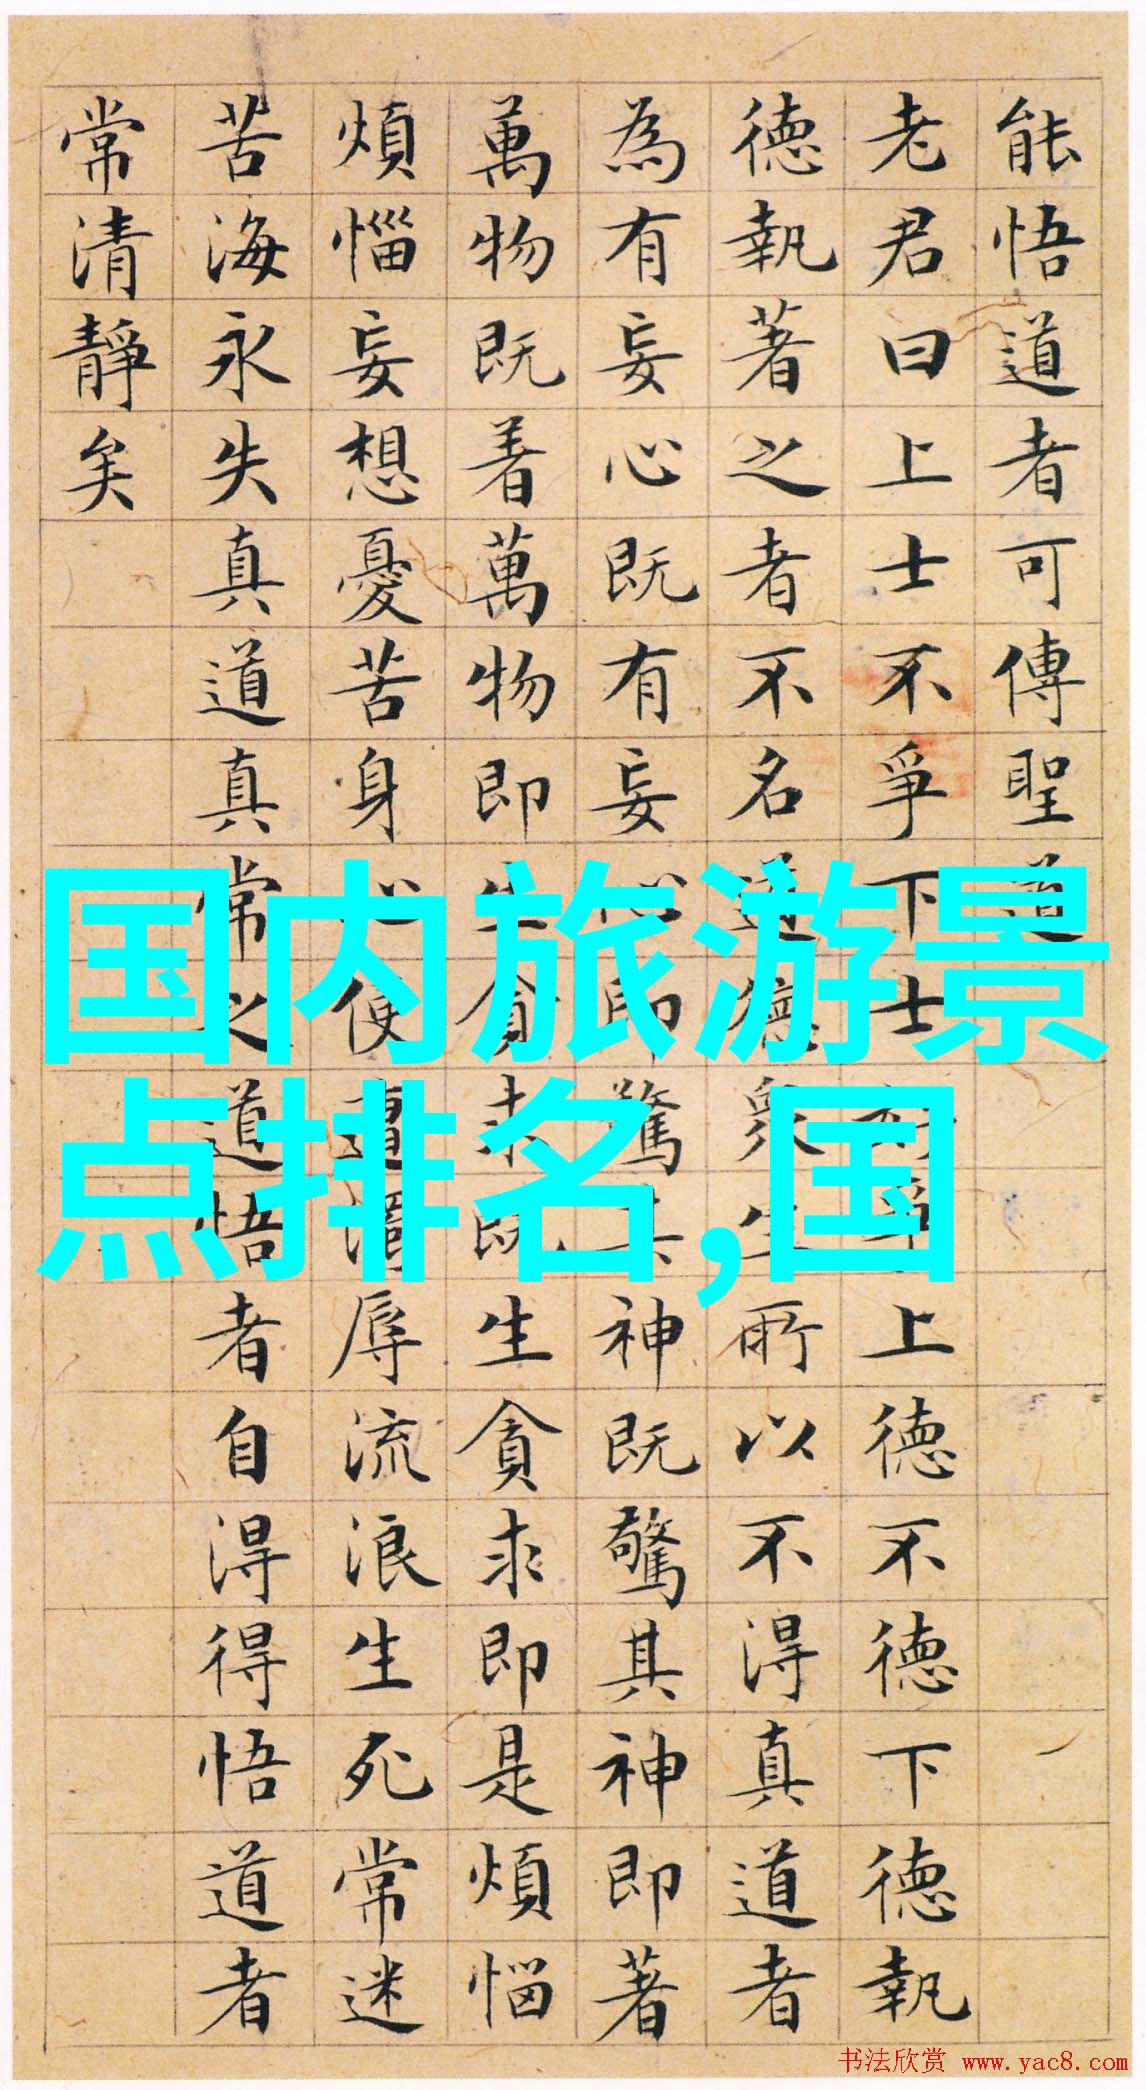 能悟道者可傳聖道
老君曰上士不爭下士好爭上德不德下德執
德執著之者不名道德眾生所以不得真道者
為有妄心既有妄心即驚其神既驚其神即著
萬物既着萬物即生貪求既生貪求即是煩惱
煩惱妄想憂苦身心便遭濁辱流浪生死常迷
苦海永失真道真常之道悟者自得得悟道者
常清靜矣
国内旅游景
点排名,国
书法欣赏 www.yac8.com